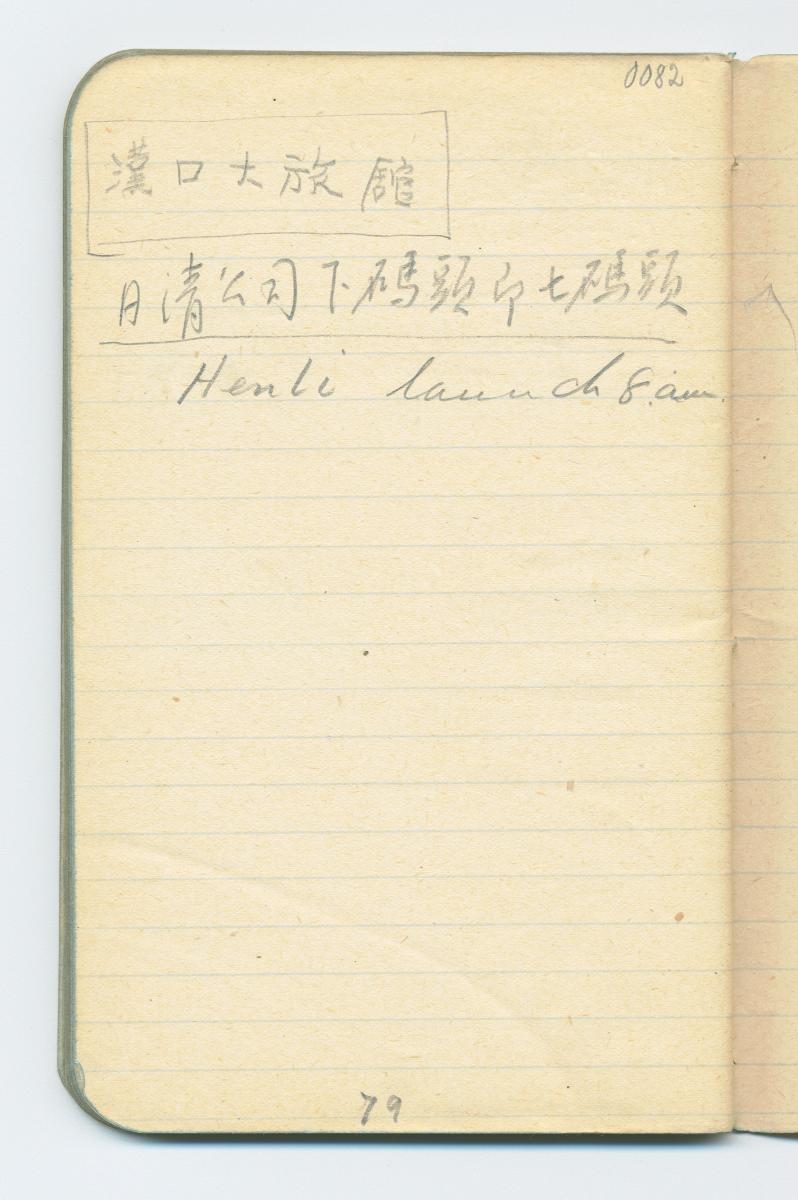 0082
漢口大旅館
日清公司下碼頭即七碼頭
Henli launch 8. am.
79